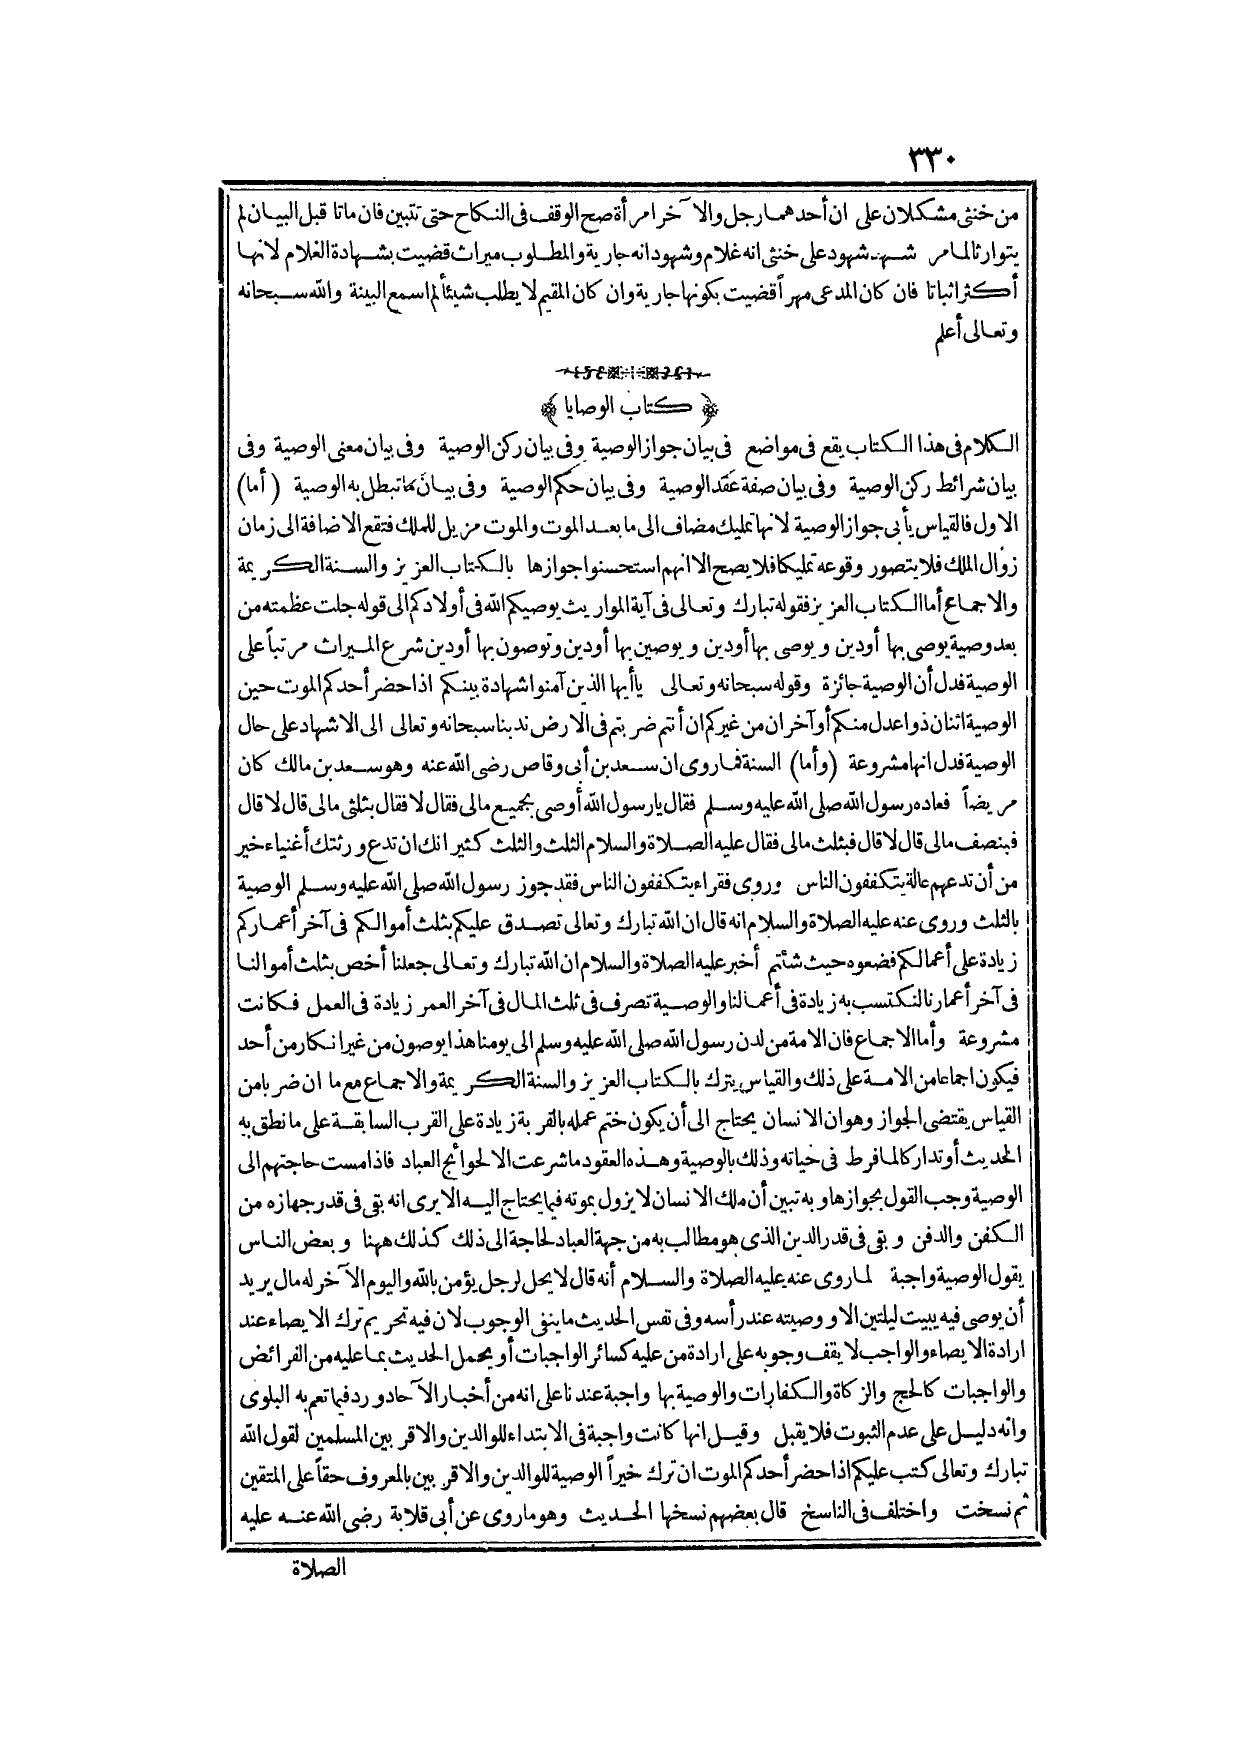 ٣٣٠
من خنثى مشكلان على ان أحدهما رجل والآخر امرأة صح الوقف فى النكاح حتى تتبين فان ماتا قبل البيان لم
يتوارثا لما مر شهد شهود على خنثى انه غلام وشهود انه جارية والمطلوب ميراث قضيت بشهادة الغلام لانها
أكثر اثباتا فان كان المدعى مهراً قضيت بكونها جارية وان كان المقيم لا يطلب شيئاً لم اسمع البينة والله سبحانه
وتعالى أعلم
﴿ كتاب الوصايا ﴾
الكلام فى هذا الكتاب يقع فى مواضع فى بيان جواز الوصية وفى بيان ركن الوصية وفى بيان معنى الوصية وفى
بيان شرائط ركن الوصية وفى بيان صفة عقد الوصية وفى بيان حكم الوصية وفى بيان ما تبطل به الوصية (أما)
الاول فالقياس يأبى جواز الوصية لانها تمليك مضاف الى ما بعد الموت والموت مزيل للملك فتقع الاضافة الى زمان
زوال الملك فلا يتصور وقوعه تمليكا فلا يصح الا انهم استحسنوا جوازها بالكتاب العزيز والسنة الكريمة
والاجماع أما الكتاب العزيز فقوله تبارك وتعالى فى آية المواريث يوصيكم الله فى أولادكم الى قوله جلت عظمته من
بعد وصية يوصى بها أودين ويوصى بها أودين ويوصين بها أودين وتوصون بها أودين شرع الميراث مرتباً على
الوصية فدل أن الوصية جائزة وقوله سبحانه وتعالى يا أيها الذين آمنوا شهادة بينكم اذا حضر أحدكم الموت حين
الوصية اثنان ذوا عدل منكم أو آخران من غيركم ان أنتم ضربتم فى الارض ندبنا سبحانه وتعالى الى الاشهاد على حال
الوصية فدل انها مشروعة (وأما) السنة فما روى ان سعد بن أبى وقاص رضى الله عنه وهو سعد بن مالك كان
مريضاً فعاده رسول الله صلى الله عليه وسلم فقال يا رسول الله أوصى بجميع مالى فقال لا فقال بثلثى مالى قال لا قال
فبنصف مالى قال لا قال فبثلث مالى فقال عليه الصلاة والسلام الثلث والثلث كثير انك ان تدع ورثتك أغنياء خير
من أن تدعهم عالة يتكففون الناس وروى فقراء يتكففون الناس فقد جوز رسول الله صلى الله عليه وسلم الوصية
بالثلث وروى عنه عليه الصلاة والسلام انه قال ان الله تبارك وتعالى تصدق عليكم بثلث أموالكم فى آخر أعماركم
زيادة على أعمالكم فضعوه حيث شئتم أخبر عليه الصلاة والسلام ان الله تبارك وتعالى جعلنا أخص بثلث أموالنا
فى آخر أعمارنا لنكتسب به زيادة فى أعمالنا والوصية تصرف فى ثلث المال فى آخر العمر زيادة فى العمل فكانت
مشروعة وأما الاجماع فان الامة من لدن رسول الله صلى الله عليه وسلم الى يومنا هذا يوصون من غير انكار من أحد
فيكون اجماعا من الامة على ذلك والقياس يترك بالكتاب العزيز والسنة الكريمة والاجماع مع ما ان ضربا من
القياس يقتضى الجواز وهو ان الانسان يحتاج الى أن يكون ختم عمله بالقربة زيادة على القرب السابقة على ما نطق به
الحديث أو تداركا لما فرط فى حياته وذلك بالوصية وهذه العقود ما شرعت الا لحوائج العباد فاذا مست حاجتهم الى
الوصية وجب القول بجوازها وبه تبين أن ملك الانسان لا يزول بموته فيما يحتاج اليه الا يرى انه بقى فى قدر جهازه من
الكفن والدفن وبقى فى قدر الدين الذى هو مطالب به من جهة العباد لحاجة الى ذلك كذلك ههنا وبعض الناس
يقول الوصية واجبة لما روى عنه عليه الصلاة والسلام أنه قال لا يحل لرجل يؤمن بالله واليوم الآخر له مال يريد
أن يوصى فيه يبيت ليلتين الا ووصيته عند رأسه وفى نفس الحديث ما ينفى الوجوب لان فيه تحريم ترك الايصاء عند
ارادة الايصاء والواجب لا يقف وجوبه على ارادة من عليه كسائر الواجبات أو يحمل الحديث بما عليه من الفرائض
والواجبات كالحج والزكاة والكفارات والوصية بها واجبة عندنا على انه من أخبار الآحاد ورد فيما تعم به البلوى
وانه دليل على عدم الثبوت فلا يقبل وقيل انها كانت واجبة فى الابتداء للوالدين والاقربين المسلمين لقول الله
تبارك وتعالى كتب عليكم اذا حضر أحدكم الموت ان ترك خيراً الوصية للوالدين والاقربين بالمعروف حقاً على المتقين
ثم نسخت واختلف فى الناسخ قال بعضهم نسخها الحديث وهو ما روى عن أبى قلابة رضى الله عنه عليه
الصلاة